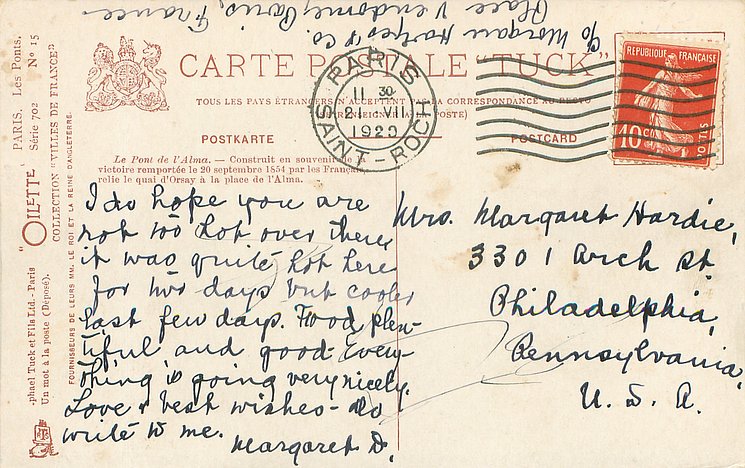 c/o Morgan Harjes & Co.
Place Vendome, Paris, France.
CARTE POSTALE "TUCK"
TOUS LES PAYS ÉTRANGERS N'ACCEPTENT PAS LA CORRESPONDANCE AU RECTO
POSTE)
POSTKARTE
POSTCARD
Le Pont de l'Alma. — Construit en souvenir de la
victoire remportée le 20 septembre 1854 par les Français,
relie le quai d'Orsay à la place de l'Alma.
PARIS
11 30
21 VII
1920
SAINT-ROCH
RÉPUBLIQUE FRANÇAISE
10c
POSTES
"OILETTE" PARIS. Les Ponts.
Série 702 No 15
COLLECTION "VILLES DE FRANCE"
FOURNISSEURS DE LEURS MM. LE ROI ET LA REINE D'ANGLETERRE.
phael Tuck et Fils Ltd. - Paris
Un mot à la poste (Déposé).
I do hope you are
not too hot over there,
it was quite hot here
for two days but cooler
last few days. Food plen-
tiful and good. Every-
thing is going very nicely.
Love & best wishes - do
write to me.
Margaret D.
Mrs. Margaret Hardie,
3301 Arch St.
Philadelphia,
Pennsylvania,
U. S. A.